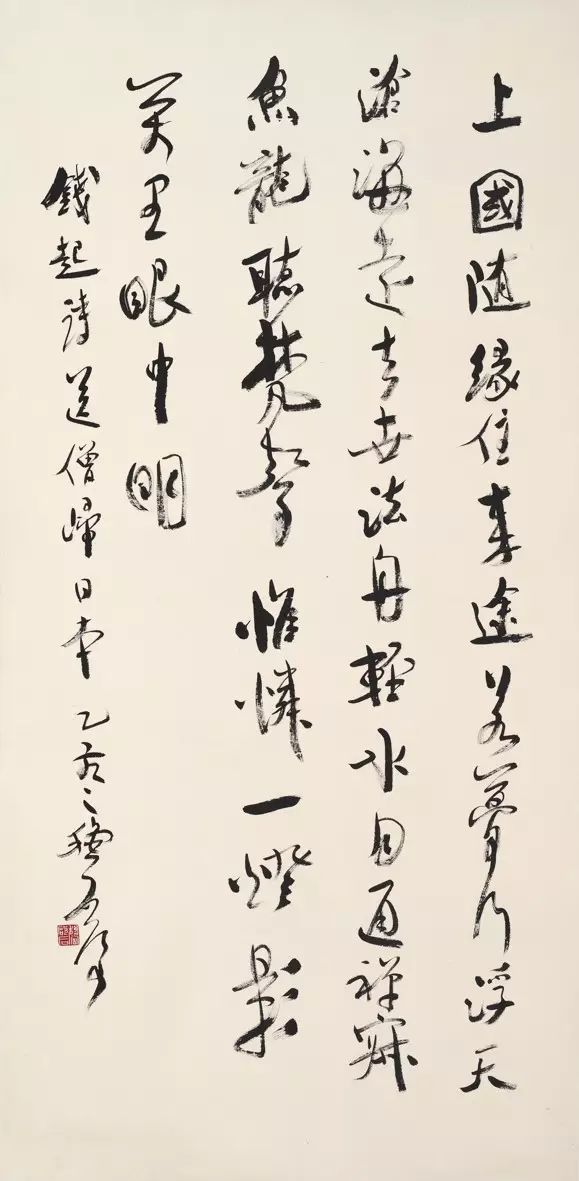 上國随緣住来途若夢行浮天
滄海遠去世法舟輕水月通禪寂
魚龍聴梵聲惟憐一燈影
萬里眼中明
錢起詩送僧歸日本 乙亥之秋